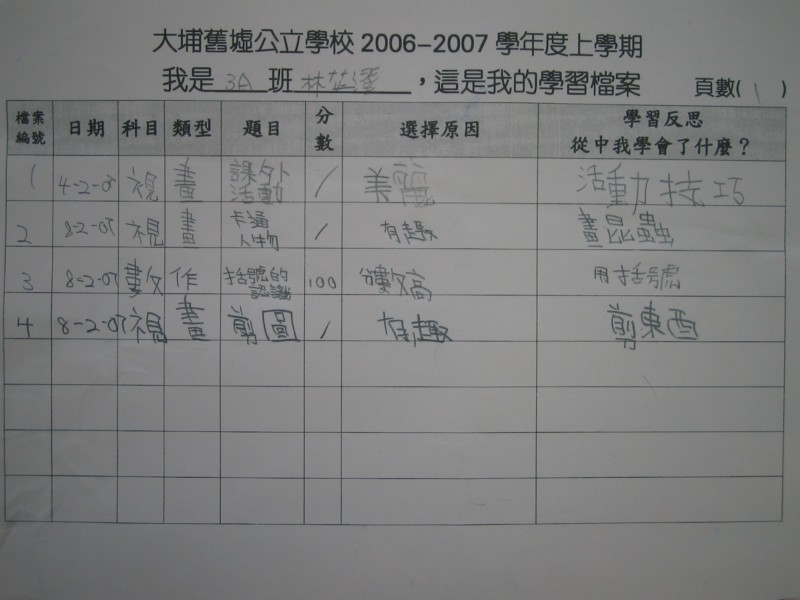 大埔舊墟公立學校 2006-2007 學年度上學期
我是 3A 班 林 ，這是我的學習檔案 頁數( 1 )
檔案編號 日期 科目 類型 題目 分數 選擇原因 學習反思 從中我學會了什麼？
1 4-2-07 視 畫 課外活動 / 美麗 活動技巧
2 8-2-07 視 畫 卡通人物 / 有趣 畫昆蟲
3 8-2-07 數 作 括號的認識 100 分數高 用括號
4 8-2-07 視 畫 剪圖 / 有趣 剪東西